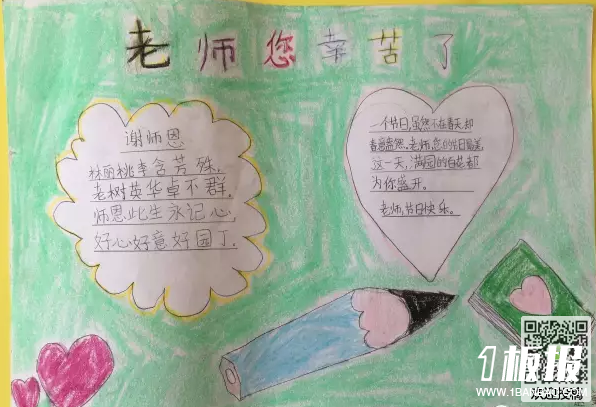 老师您幸苦了
谢师恩
林丽桃李含芳殊,
老树英华卓不群,
师恩此生永记心,
好心好意好园丁.
一个节日,虽然不在春天,却
春意盎然.老师,您的节日最美,
这一天,满园的百花都
为你盛开。
老师,节日快乐。
1板报
WWW.1BANBAO.COM
欢迎投稿